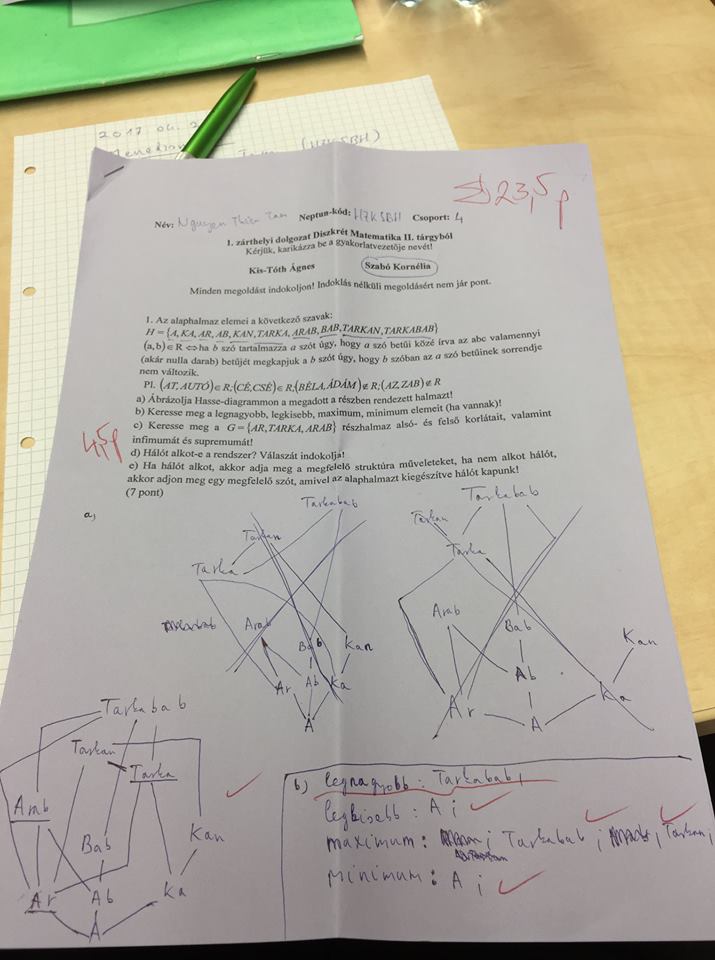 2017 04. 2
Név: Nguyen Thien Tan Neptun-kód: H7KSBH Csoport: 4
23,5 p
1. zárthelyi dolgozat Diszkrét Matematika II. tárgyból
Kérjük, karikázza be a gyakorlatvezetője nevét!
Kis-Tóth Ágnes Szabó Kornélia
Minden megoldást indokoljon! Indoklás nélküli megoldásért nem jár pont.
1. Az alaphalmaz elemei a következő szavak:
H = {A, KA, AR, AB, KAN, TARKA, ARAB, BAB, TARKAN, TARKABAB}
(a,b)∈R ⇔ ha b szó tartalmazza a szót úgy, hogy a szó betűi közé írva az abc valamennyi
(akár nulla darab) betűjét megkapjuk a b szót úgy, hogy b szóban az a szó betűinek sorrendje
nem változik.
Pl. (AT, AUTÓ)∈R; (CÉ, CSÉ)∈R; (BÉLA, ÁDÁM)∉R; (AZ, ZAB)∉R
a) Ábrázolja Hasse-diagrammon a megadott a részben rendezett halmazt!
b) Keresse meg a legnagyobb, legkisebb, maximum, minimum elemeit (ha vannak)!
c) Keresse meg a G = {AR, TARKA, ARAB} részhalmaz alsó- és felső korlátait, valamint
infimumát és supremumát!
4,5p
d) Hálót alkot-e a rendszer? Válaszát indokolja!
e) Ha hálót alkot, akkor adja meg a megfelelő struktúra műveleteket, ha nem alkot hálót,
akkor adjon meg egy megfelelő szót, amivel az alaphalmazt kiegészítve hálót kapunk!
(7 pont)
a)
Tarkabab
Tarkan
Tarka
Arab
Bab Kan
Ar Ab Ka
A
Tarkabab
Tarkan
Tarka
Arab
Bab
Kan
Ab
Ar A Ka
Tarkabab
Tarkan
Tarka
Arab
Bab Kan
Ar Ab Ka
A
b) legnagyobb: Tarkabab;
legkisebb: A;
maximum: ; Tarkabab; ; Tarkan;
minimum: A;